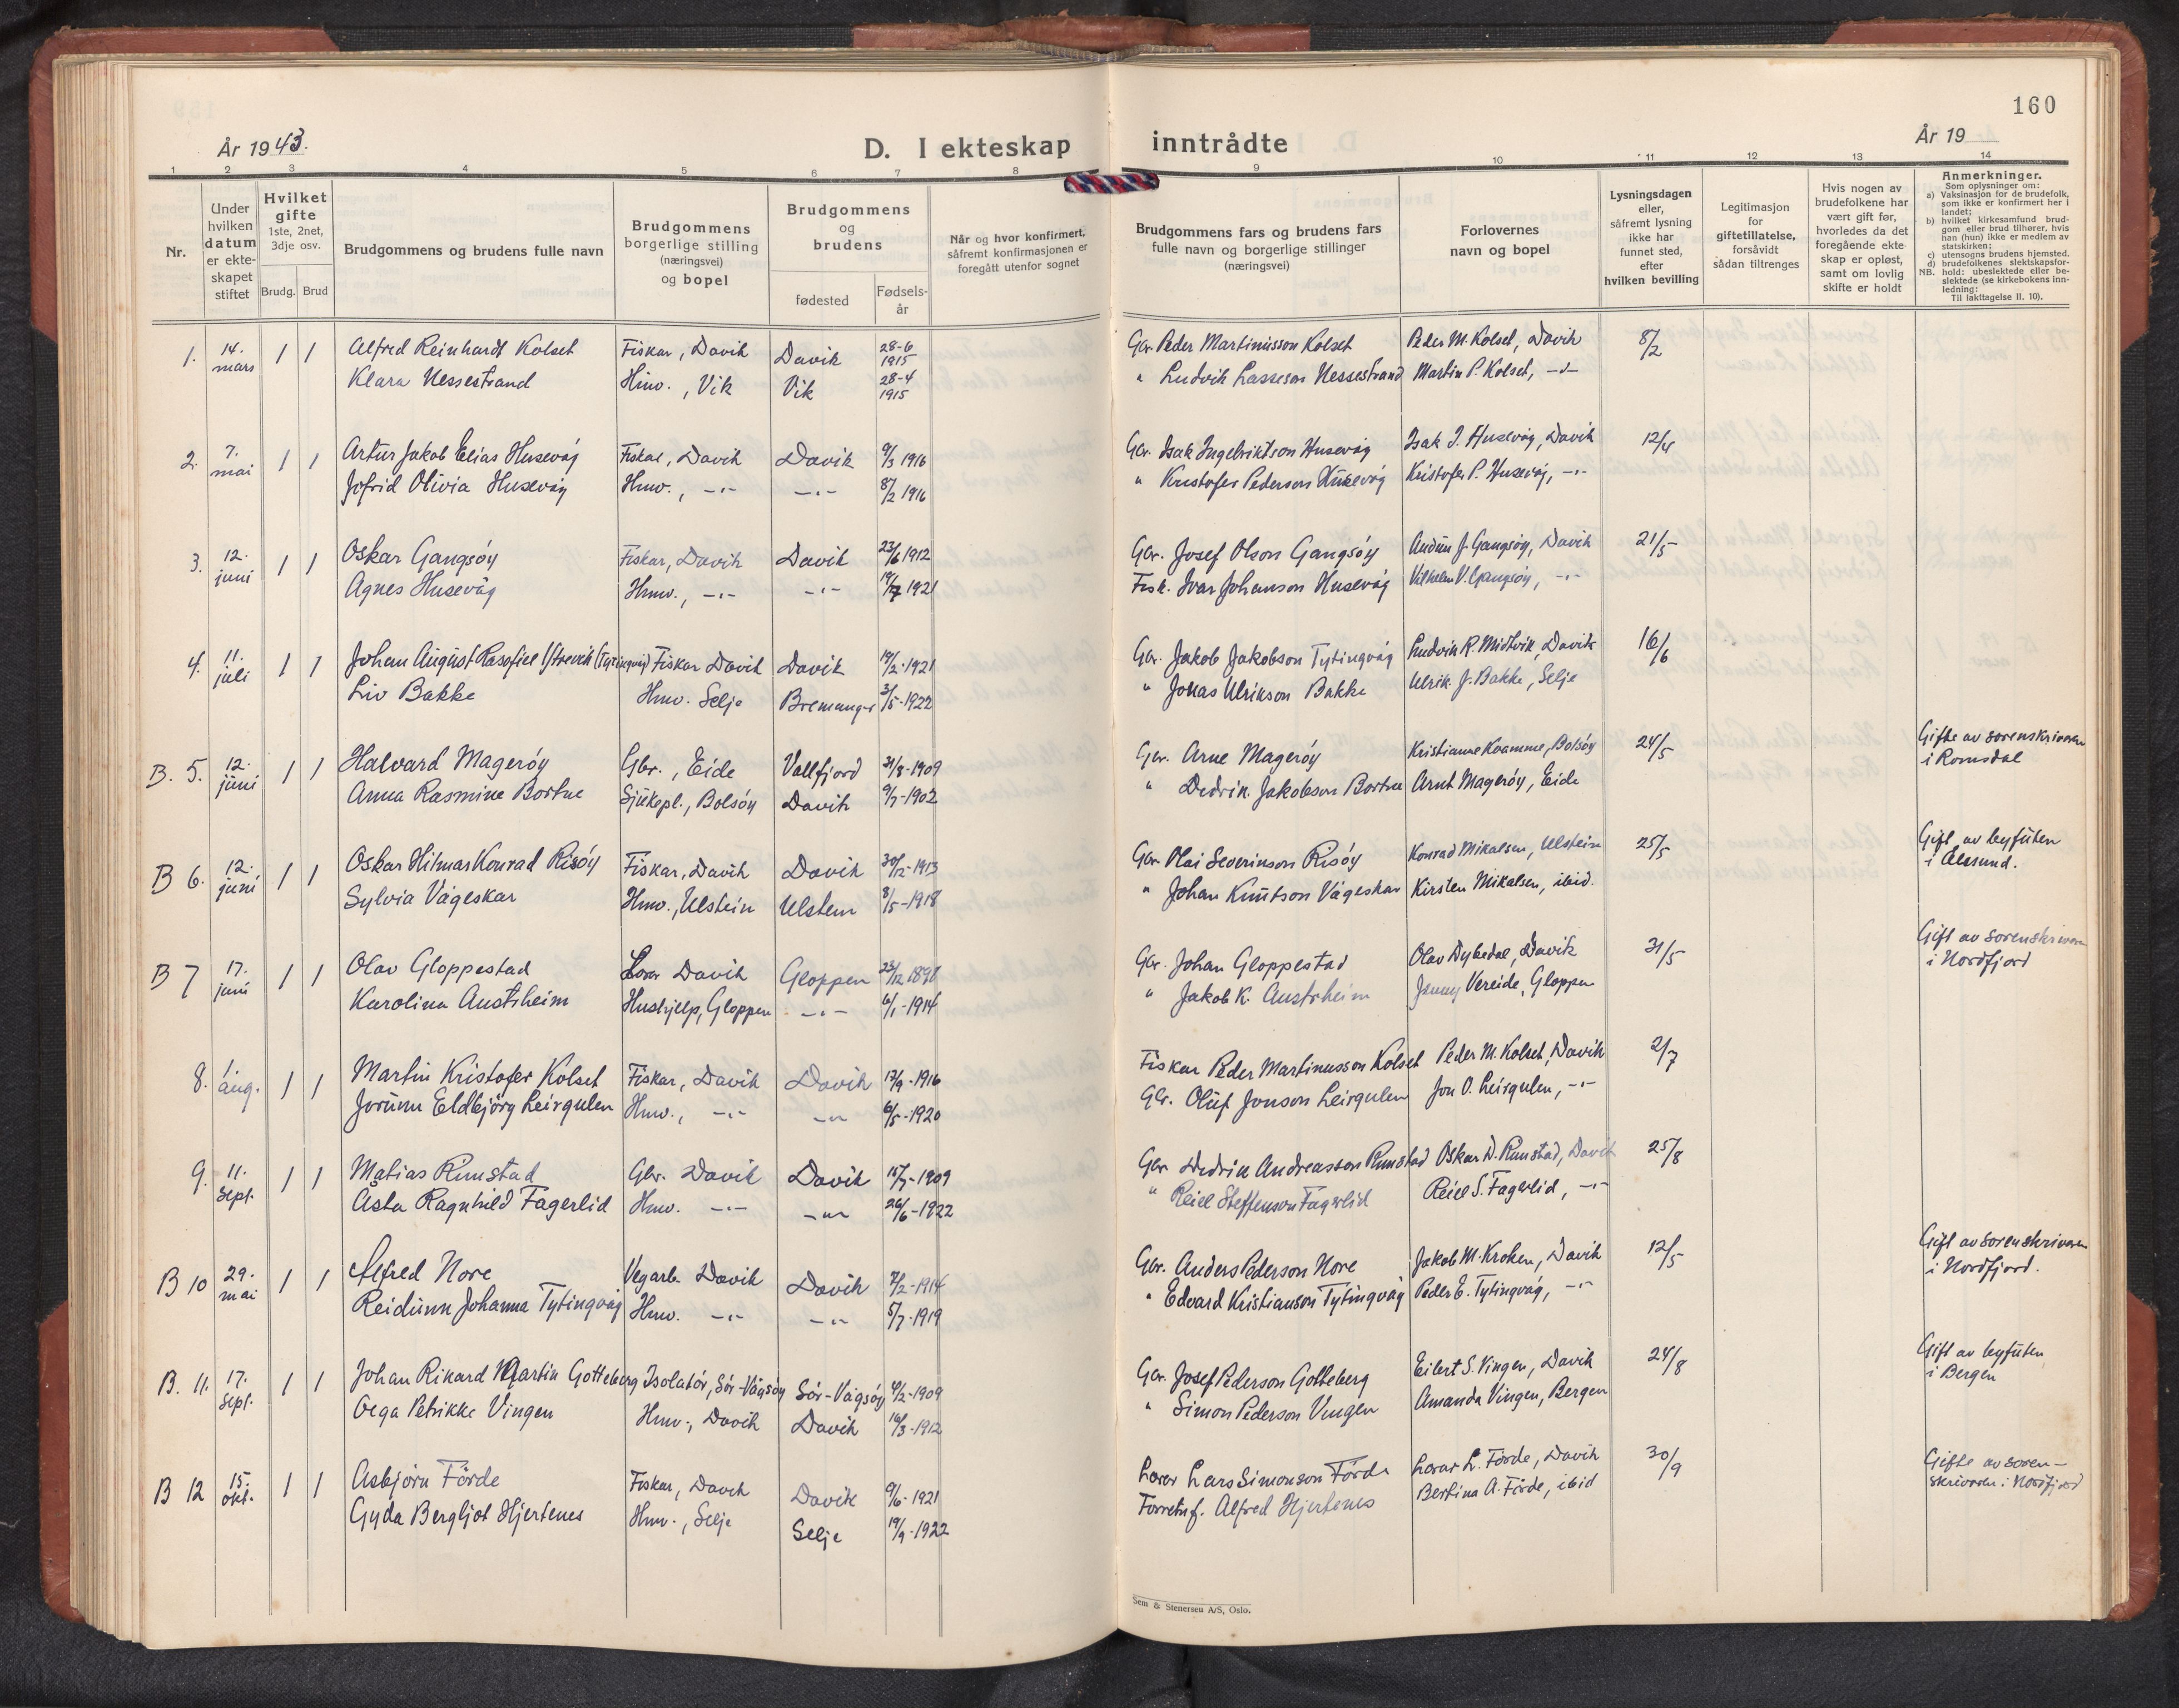 160
År 1943.
D. I ekteskap inntrådte
År 19
1 2 3 4 5 6 7 8 9 10 11 12 13 14
Nr.
Under hvilken datum er ekteskapet stiftet
Hvilket gifte 1ste, 2net, 3dje osv.
Brudg. Brud
Brudgommens og brudens fulle navn
Brudgommens borgerlige stilling (næringsvei) og bopel
Brudgommens og brudens
fødested
Fødselsår
Når og hvor konfirmert, såfremt konfirmasjonen er foregått utenfor sognet
Brudgommens fars og brudens fars fulle navn og borgerlige stillinger (næringsvei)
Forlovernes navn og bopel
Lysningsdagen eller, såfremt lysning ikke har funnet sted, efter hvilken bevilling
Legitimasjon for giftetillatelse, forsåvidt sådan tiltrenges
Hvis nogen av brudefolkene har vært gift før, hvorledes da det foregående ekteskap er opløst, samt om lovlig skifte er holdt
Anmerkninger.
Som oplysninger om:
a) Vaksinasjon for de brudefolk, som ikke er konfirmert her i landet;
b) hvilket kirkesamfund brudgom eller brud tilhører, hvis han (hun) ikke er medlem av statskirken;
c) utensogns brudens hjemsted.
d) brudefolkenes slektskapsforhold: ubeslektede eller beslektede (se kirkebokens innledning:
NB. Til iakttagelse II. 10).
1. 14. mars 1 1 Alfred Reinhardt Kolset Fiskar, Davik Davik 28-6 1915 Gbr. Peder Martinusson Kolset Peder M. Kolset, Davik 8/2
Klara Nessestrand Hmv., Vik Vik 28-4 1915 " Ludvik Lasseson Nessestrand Martin P. Kolset, -"-
2. 7. mai 1 1 Artur Jakob Elias Husevåg Fiskar, Davik Davik 9/3 1916 Gbr. Isak Ingebriktson Husevåg Isak I. Husevåg, Davik 12/4
Jofrid Olivia Husevåg Hmv., -"- -"- 1916 " Kristofer Pederson Husevåg Kristofer P. Husevåg, -"-
3. 12. juni 1 1 Oskar Gangsöy Fiskar, Davik Davik 23/6 1912 Gbr. Josef Olson Gangsöy Audun J. Gangsöy, Davik 21/5
Agnes Husevåg Hmv., -"- -"- 19/7 1921 Fisk. Ivar Johanson Husevåg Vilhelm V. Gangsöy, -"-
4. 11. juli 1 1 Johan August Rasofiel Fiskar Davik Davik 19/2-1921 Gbr. Jakob Jakobson Tytingvåg Ludvik R. Midtvik, Davik 16/6
Liv Bakke Hmv. Selje Bremanger 3/5-1922 " Jonas Ulrikson Bakke Ulrik J. Bakke, Selje
B. 5. 12. juni 1 1 Halvard Mageröy Gbr., Eide Vallfjord 31/8-1909 Gbr. Arne Mageröy Kristianne Kvamme, Bolsöy 24/5 Gifte av sorenskriveren i Romsdal
Anna Rasmine Bortne Sjukepl., Bolsöy Davik 9/7-1902 " Didrik Jakobson Bortne Arnt Mageröy, Eide
B 6. 12. juni 1 1 Oskar Hilmar Konrad Risöy Fiskar, Davik Davik 30/12-1913 Gbr. Olai Severinson Risöy Konrad Mikalsen, Ulstein 25/5 Gift av byfuten i Ålesund.
Sylvia Vågeskar Hmv., Ulstein Ulstein 8/5-1918 " Johan Knutson Vågeskar Kirsten Mikalsen, ibid.
B 7 17. juni 1 1 Olav Gloppestad Lærar Davik Gloppen 23/12 1898 Gbr. Johan Gloppestad Olav Dybedal, Davik 31/5 Gift av sorenskriveren i Nordfjord
Karolina Austrheim Hushjelp, Gloppen -"- 6/1-1914 " Jakob K. Austrheim Jenny Vereide, Gloppen
8. 1. aug. 1 1 Martin Kristofer Kolset Fiskar, Davik Davik 17/9-1916 Fiskar Peder Martinusson Kolset Peder M. Kolset, Davik 2/7
Jorunn Eldbjörg Leirgulen Hmv., -"- -"- 6/5-1920 Gbr. Oluf Jonson Leirgulen Jon O. Leirgulen, -"-
9. 11. sept. 1 1 Matias Rimstad Gbr. Davik Davik 15/7-1909 Gbr Didrik Andreasson Rimstad Oskar D. Rimstad, Davik 25/8
Åsta Ragnhild Fagerlid Hmv. -"- -"- 26/6-1922 " Reiel Steffenson Fagerlid Reiel S. Fagerlid, -"-
B 10 29. mai 1 1 Alfred Nore Vegarb. Davik Davik 7/2-1914 Gbr. Anders Pederson Nore Jakob M. Kroken, Davik 12/5 Gift av sorenskriveren i Nordfjord.
Reidunn Johanna Tytingvåg Hmv. -"- -"- 5/7-1919 " Edvard Kristianson Tytingvåg Peder E. Tytingvåg, -"-
B. 11. 17. sept. 1 1 Johan Rikard Martin Gotteberg Isolatör, Sör-Vågsöy Sör-Vågsöy 4/2-1909 Gbr. Josef Pederson Gotteberg Eilert S. Vingen, Davik 24/8 Gift av byfuten i Bergen
Olga Petrikke Vingen Hmv., Davik Davik 16/3-1912 " Simon Pederson Vingen Amanda Vingen, Bergen
B 12 15. okt. 1 1 Asbjörn Förde Fiskar, Davik Davik 9/6-1921 Lærar Lars Simonson Förde Lærar L. Förde, Davik 30/9 Gifte av sorenskriveren i Nordfjord
Gyda Bergljot Hjertenes Hmv., Selje Selje 19/9-1922 Forretnf. Alfred Hjertenes Bertina A. Förde, ibid
Sem & Stenersen A/S, Oslo.